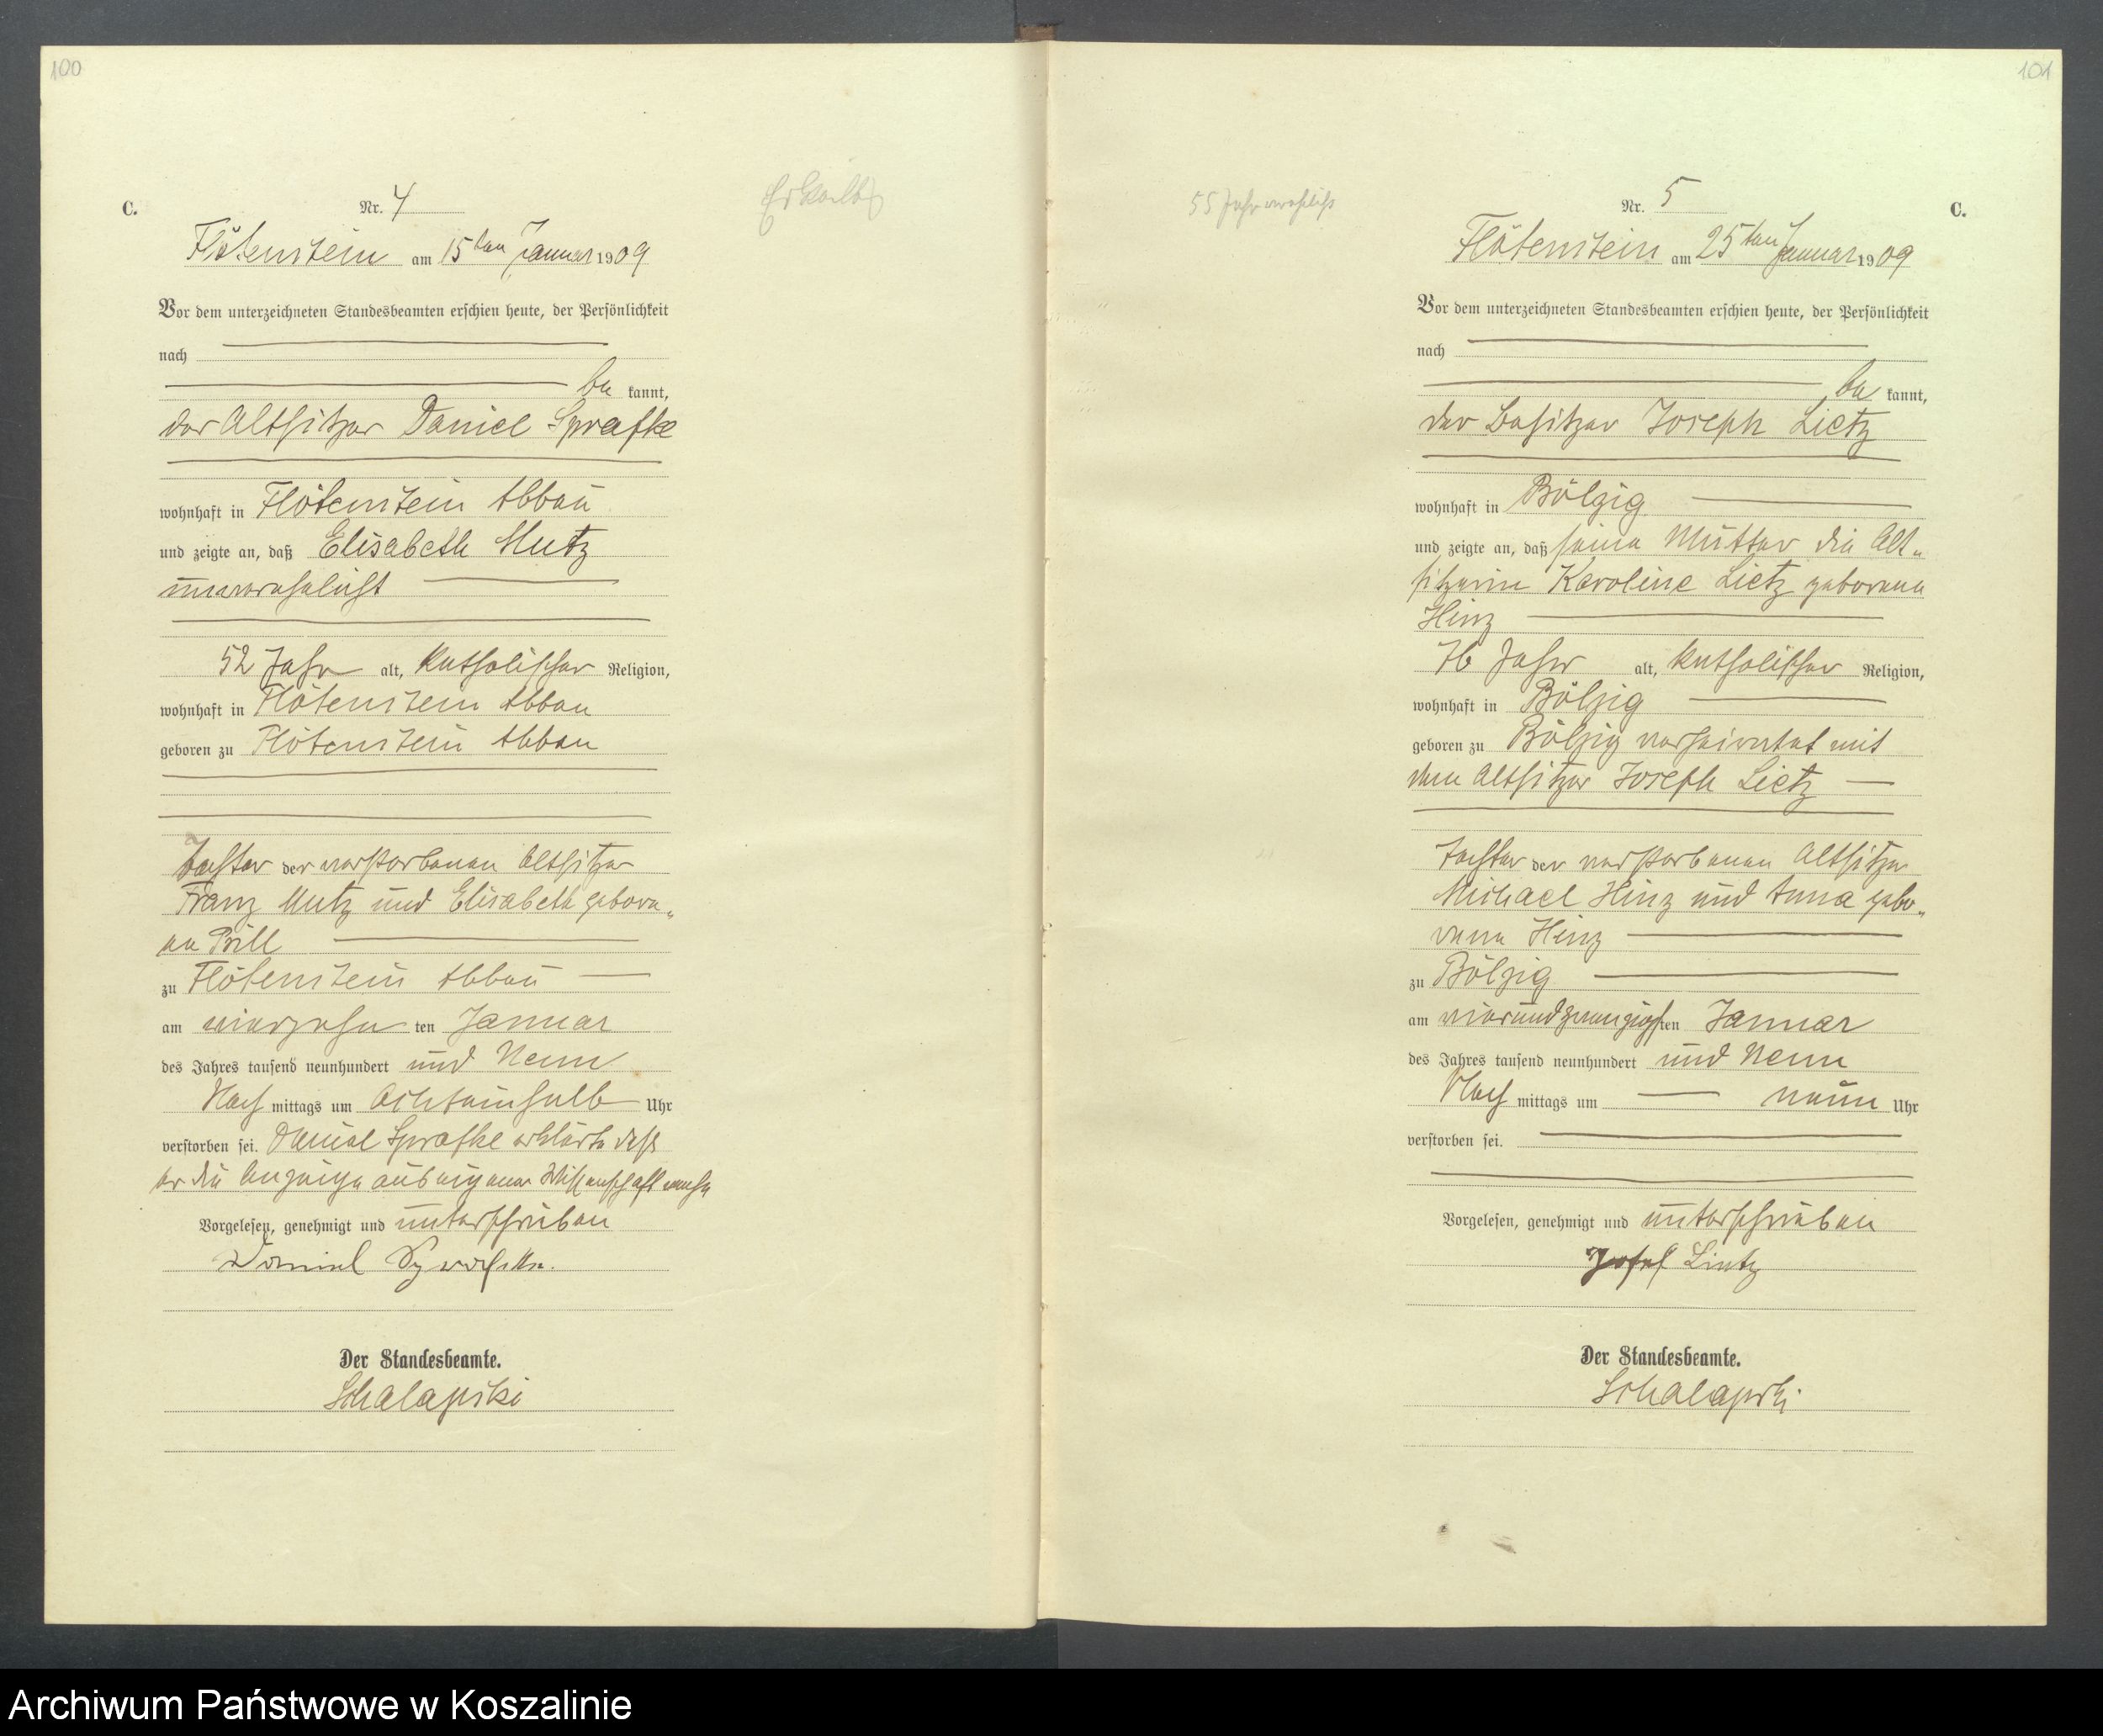 100
C.
Nr. 4
Erkält
Flötenstein am 15ten Januar 1909
Vor dem unterzeichneten Standesbeamten erschien heute, der Persönlichkeit
nach
be kannt,
der Altsitzer Daniel Sprafke
wohnhaft in Flötenstein Abbau
und zeigte an, daß Elisabeth Mutz
unverehelicht
52 Jahr alt, katholischer Religion,
wohnhaft in Flötenstein Abbau
geboren zu Flötenstein Abbau
Tochter der verstorbenen Altsitzer
Franz Mutz und Elisabeth gebore„
ne Prill
zu Flötenstein Abbau
am vierzehn ten Januar
des Jahres tausend neunhundert und Neun
Nach mittags um Achteinhalb Uhr
verstorben sei. Daniel Sprafke erklärte daß
er die Anzeige aus eigener Wissenschaft mache
Vorgelesen, genehmigt und unterschrieben
Daniel Sprafke.
Der Standesbeamte.
Schalapski
101
55 Jahr verehelicht
Nr. 5
C.
Flötenstein am 25ten Januar 1909
Vor dem unterzeichneten Standesbeamten erschien heute, der Persönlichkeit
nach
be kannt,
der Besitzer Joseph Lietz
wohnhaft in Bölzig
und zeigte an, daß seine Mutter die Alt„
sitzerin Karoline Lietz geborene
Hinz
76 Jahr alt, katholischer Religion,
wohnhaft in Bölzig
geboren zu Bölzig verheiratet mit
dem Altsitzer Joseph Lietz
Tochter der verstorbenen Altsitzer
Michael Hinz und Anna gebo„
rene Hinz
zu Bölzig
am vierundzwanzigsten Januar
des Jahres tausend neunhundert und Neun
Nach mittags um neun Uhr
verstorben sei.
Vorgelesen, genehmigt und unterschrieben
Josef Lietz
Der Standesbeamte.
Schalapski
Archiwum Państwowe w Koszalinie